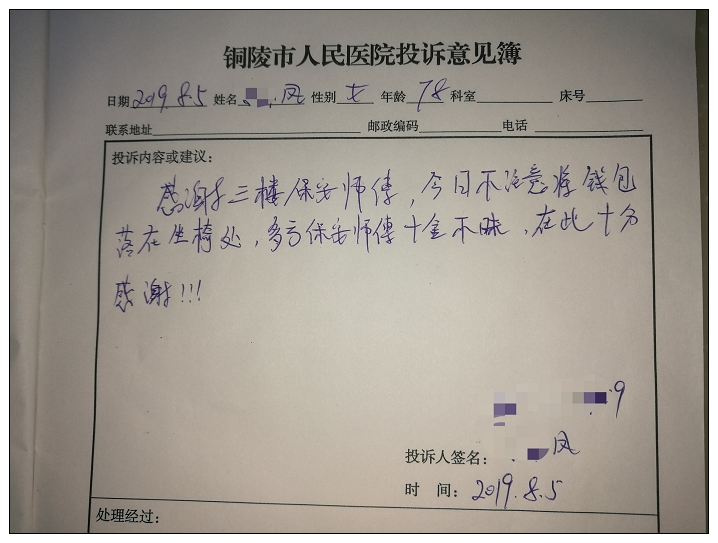 铜陵市人民医院投诉意见簿
日期2019.8.5 姓名 凤 性别 女 年龄 78 科室 床号
联系地址 邮政编码 电话
投诉内容或建议：
感谢三楼保安师傅，今日不注意将钱包
落在坐椅处，多亏保安师傅十金不昧，在此十分
感谢!!!
9
投诉人签名： 凤
时 间：2019.8.5
处理经过：